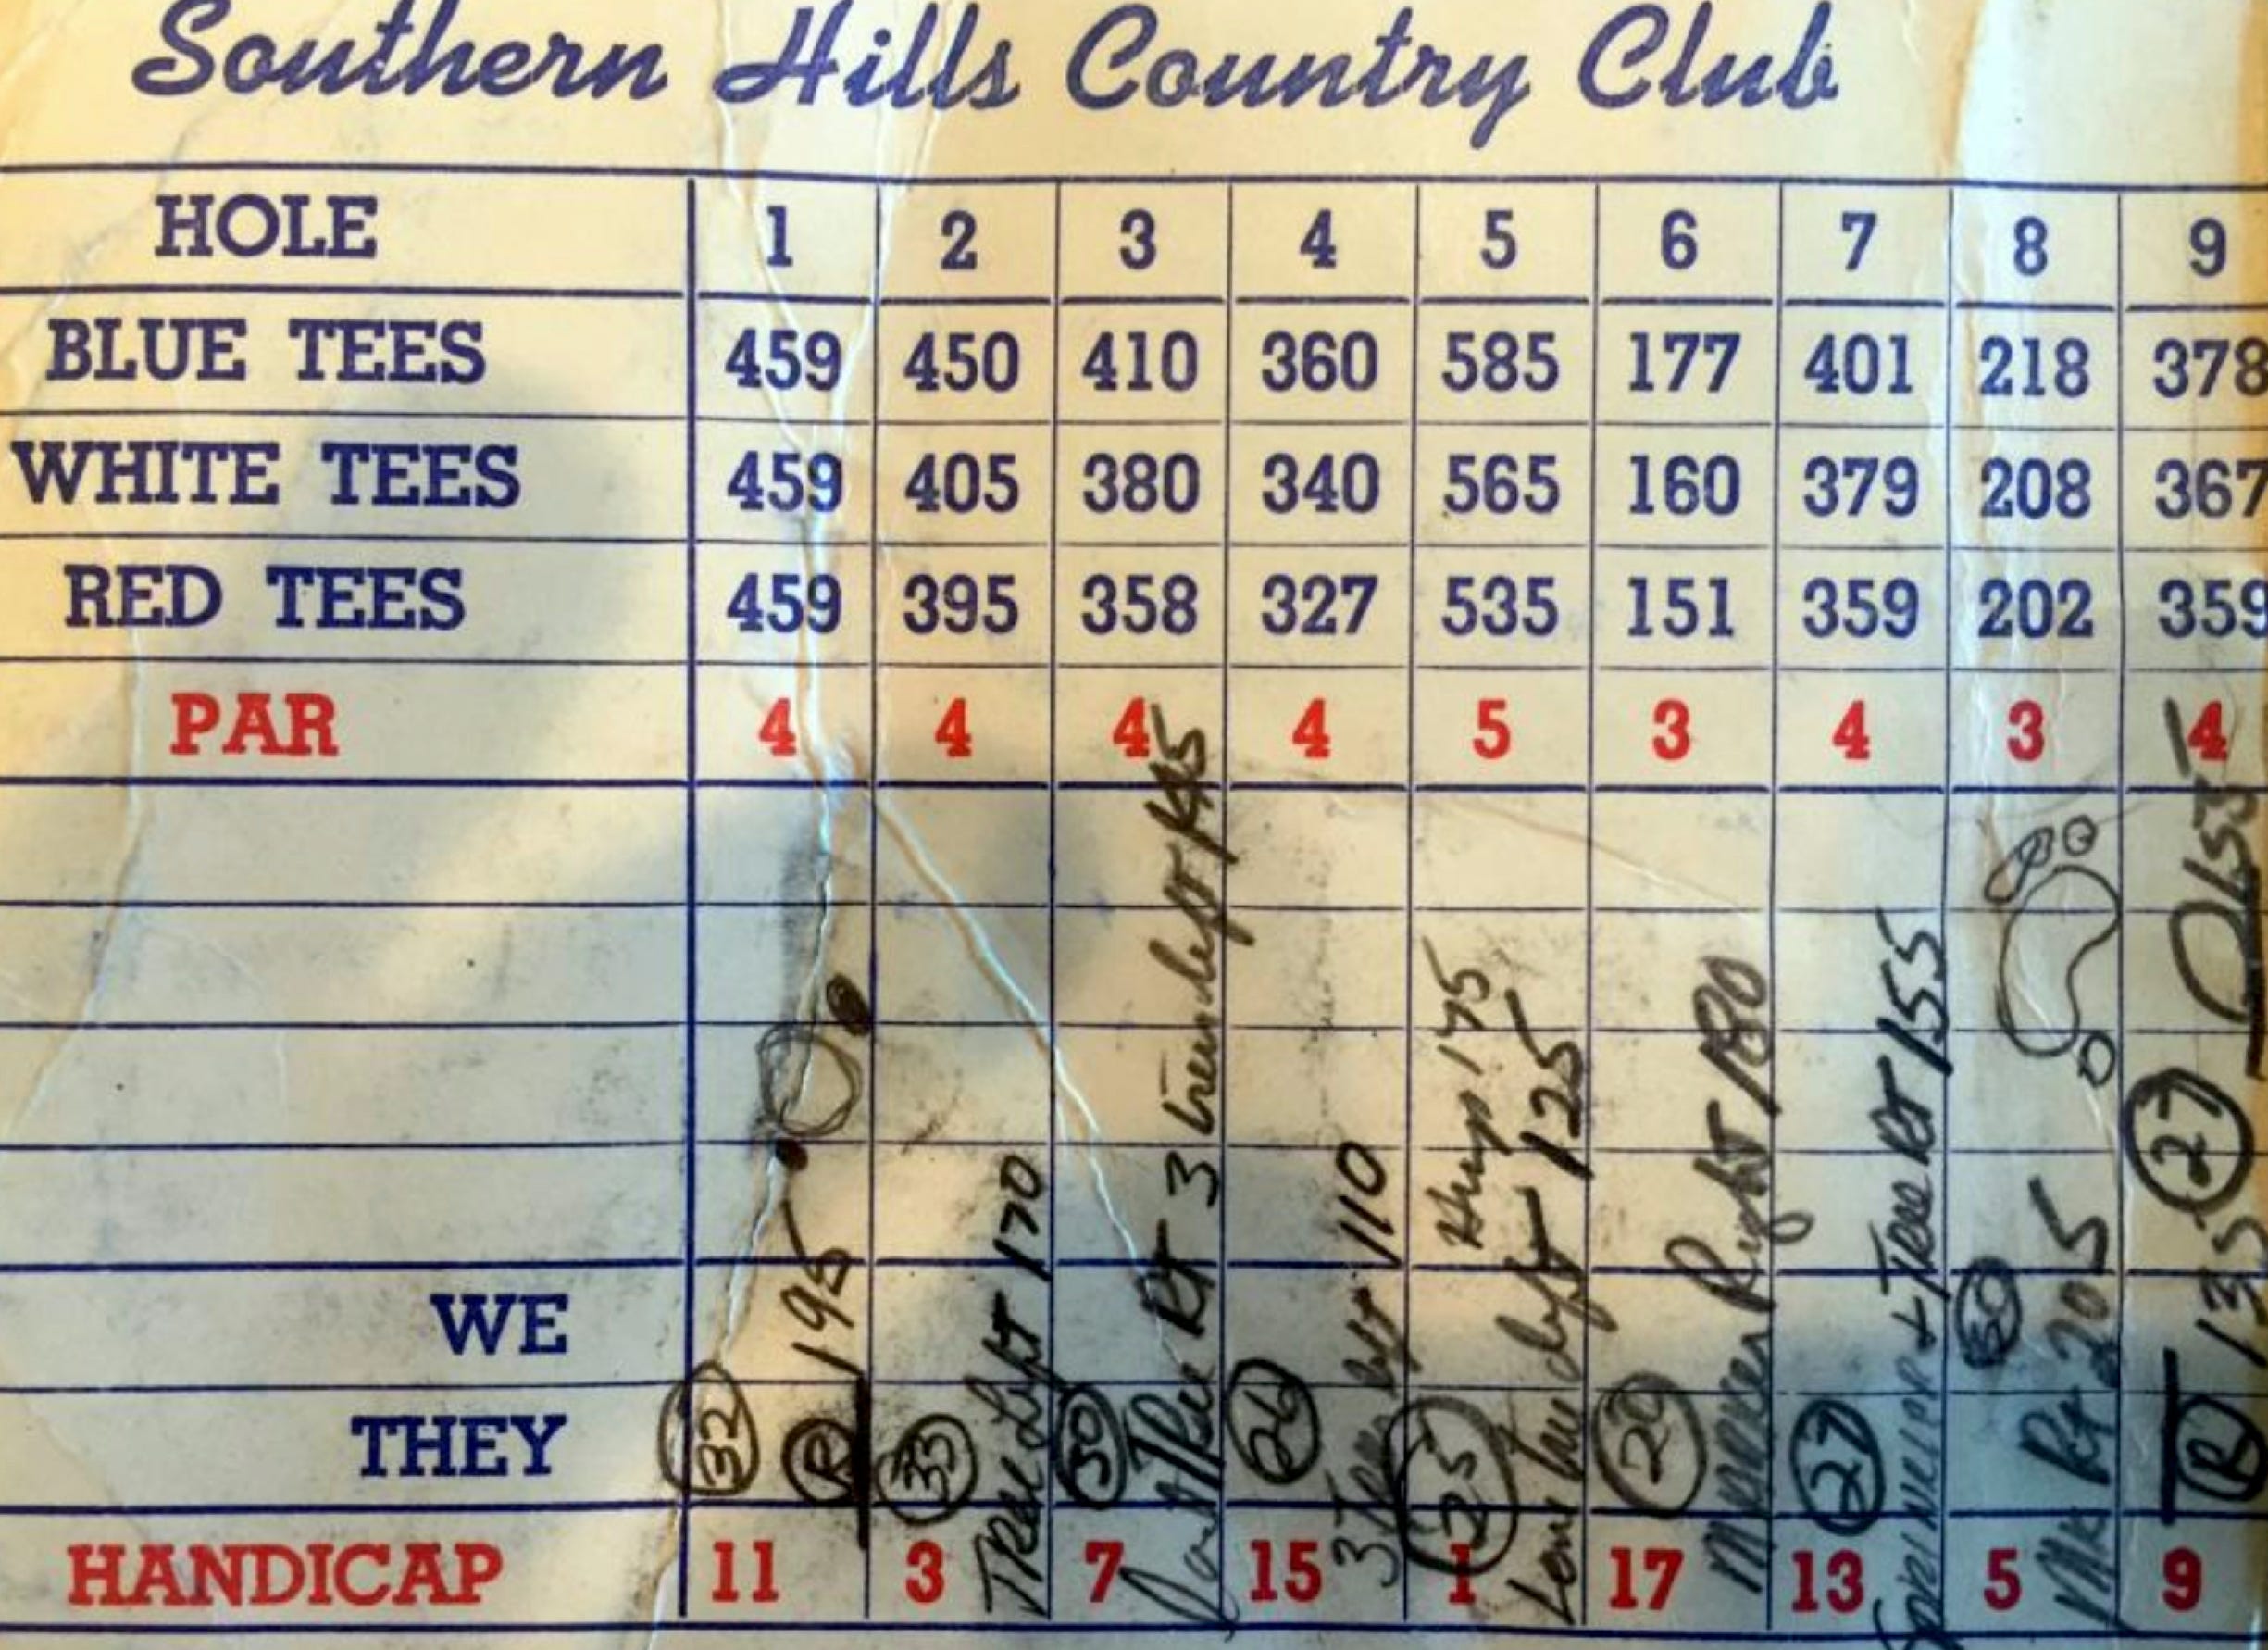 Southern Hills Country Club
HOLE 1 2 3 4 5 6 7 8 9
BLUE TEES 459 450 410 360 585 177 401 218 378
WHITE TEES 459 405 380 340 565 160 379 208 367
RED TEES 459 395 358 327 535 151 359 202 359
PAR 4 4 4 4 5 3 4 3 4
WE
THEY
HANDICAP 11 3 7 15 1 17 13 5 9
32
R 195
33
Tree Left 170
30
Tree Rt 3 trees left 145
26
3 Trees left 110
25
Hump 175
Low tree left 125
29
Marker Right 180
27
Sprinkler + Tree Rt 155
30
Mk Rt 205
27
R 135
D 155